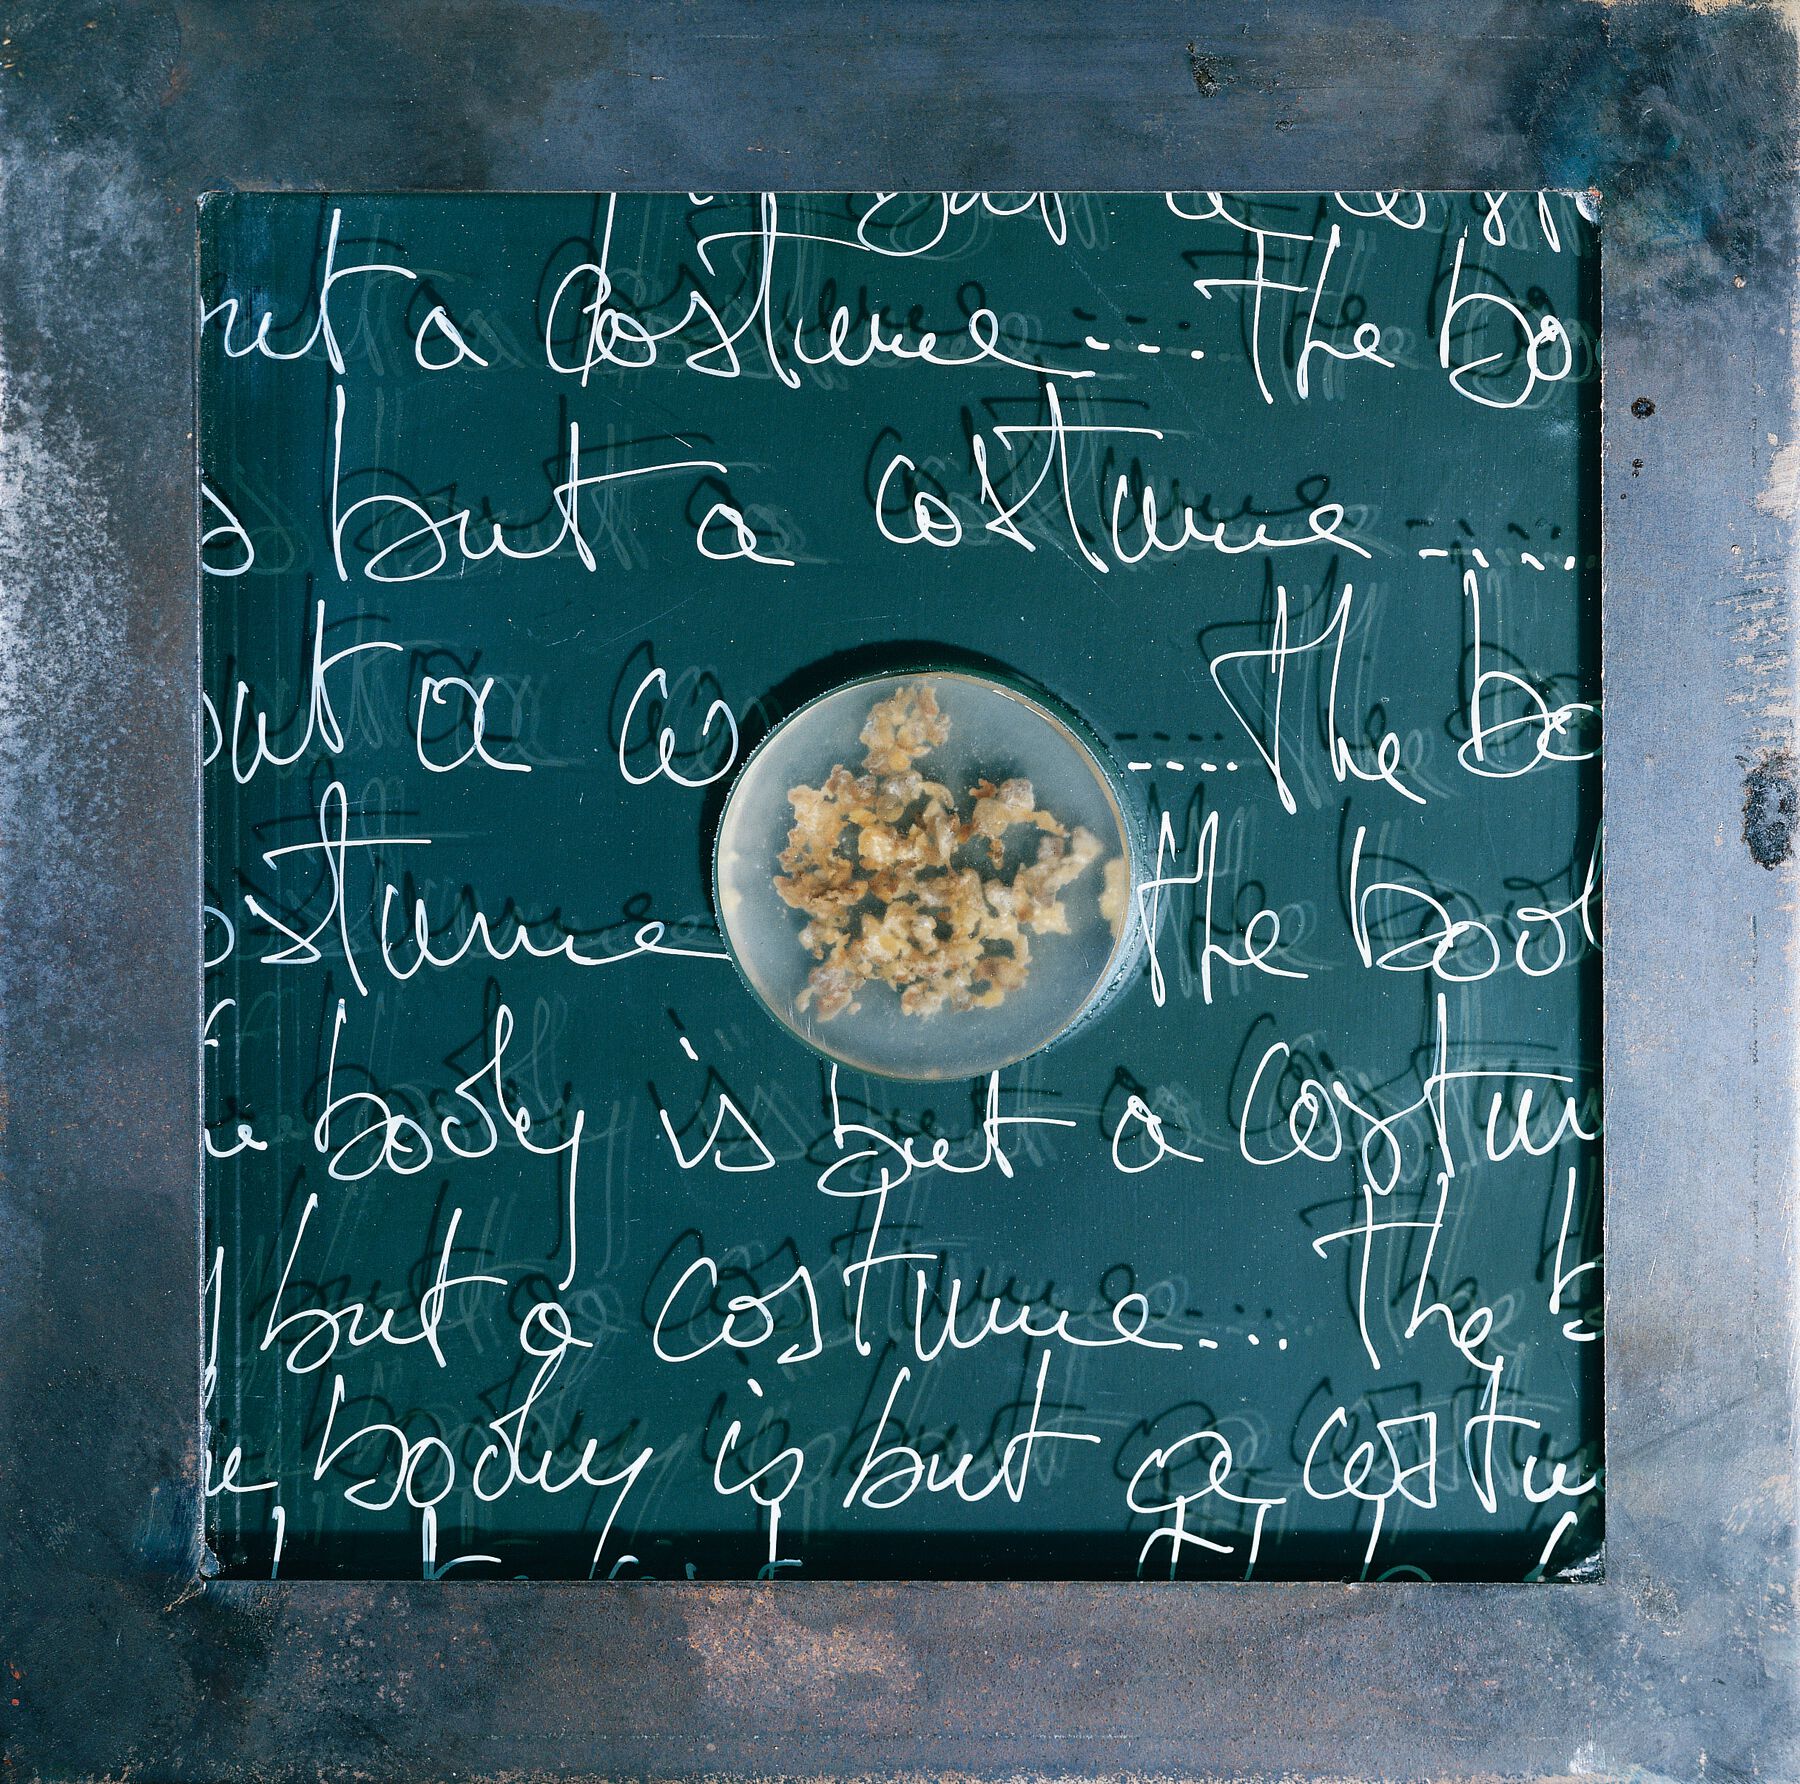 but a costume .... The bo
s but a costume .....
but a co ..... The bo
ostume The bod
e body is but a costum
y but a costume.... The b
he body is but a costu